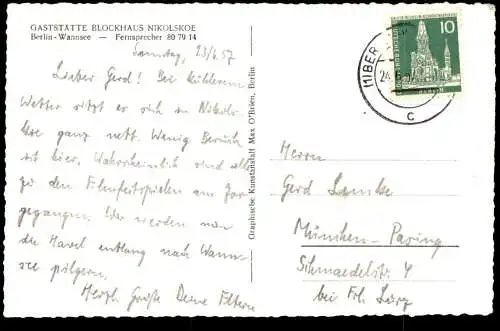 GASTSTÄTTE BLOCKHAUS NIKOLSKOE
Berlin-Wannsee — Fernsprecher 80 79 14
Samstag, 23/6.57
Lieber Gerd! Bei kühlerem
Wetter sitzt es sich in Nikols-
koe ganz nett. Wenig Besuch
ist hier. Wahrscheinlich sind alle
zu den Filmfestspielen am Zoo
gegangen. Wir werden nun
die Havel entlang nach Wann-
see pilgern.
Herzl. Grüße Deine Eltern
Graphische Kunstanstalt Max O'Brien, Berlin
(1) BER
24.6.
c
10
BERLIN
Herrn
Gerd Lemke
München-Pasing
Schmaedelstr. 4
bei Frl.